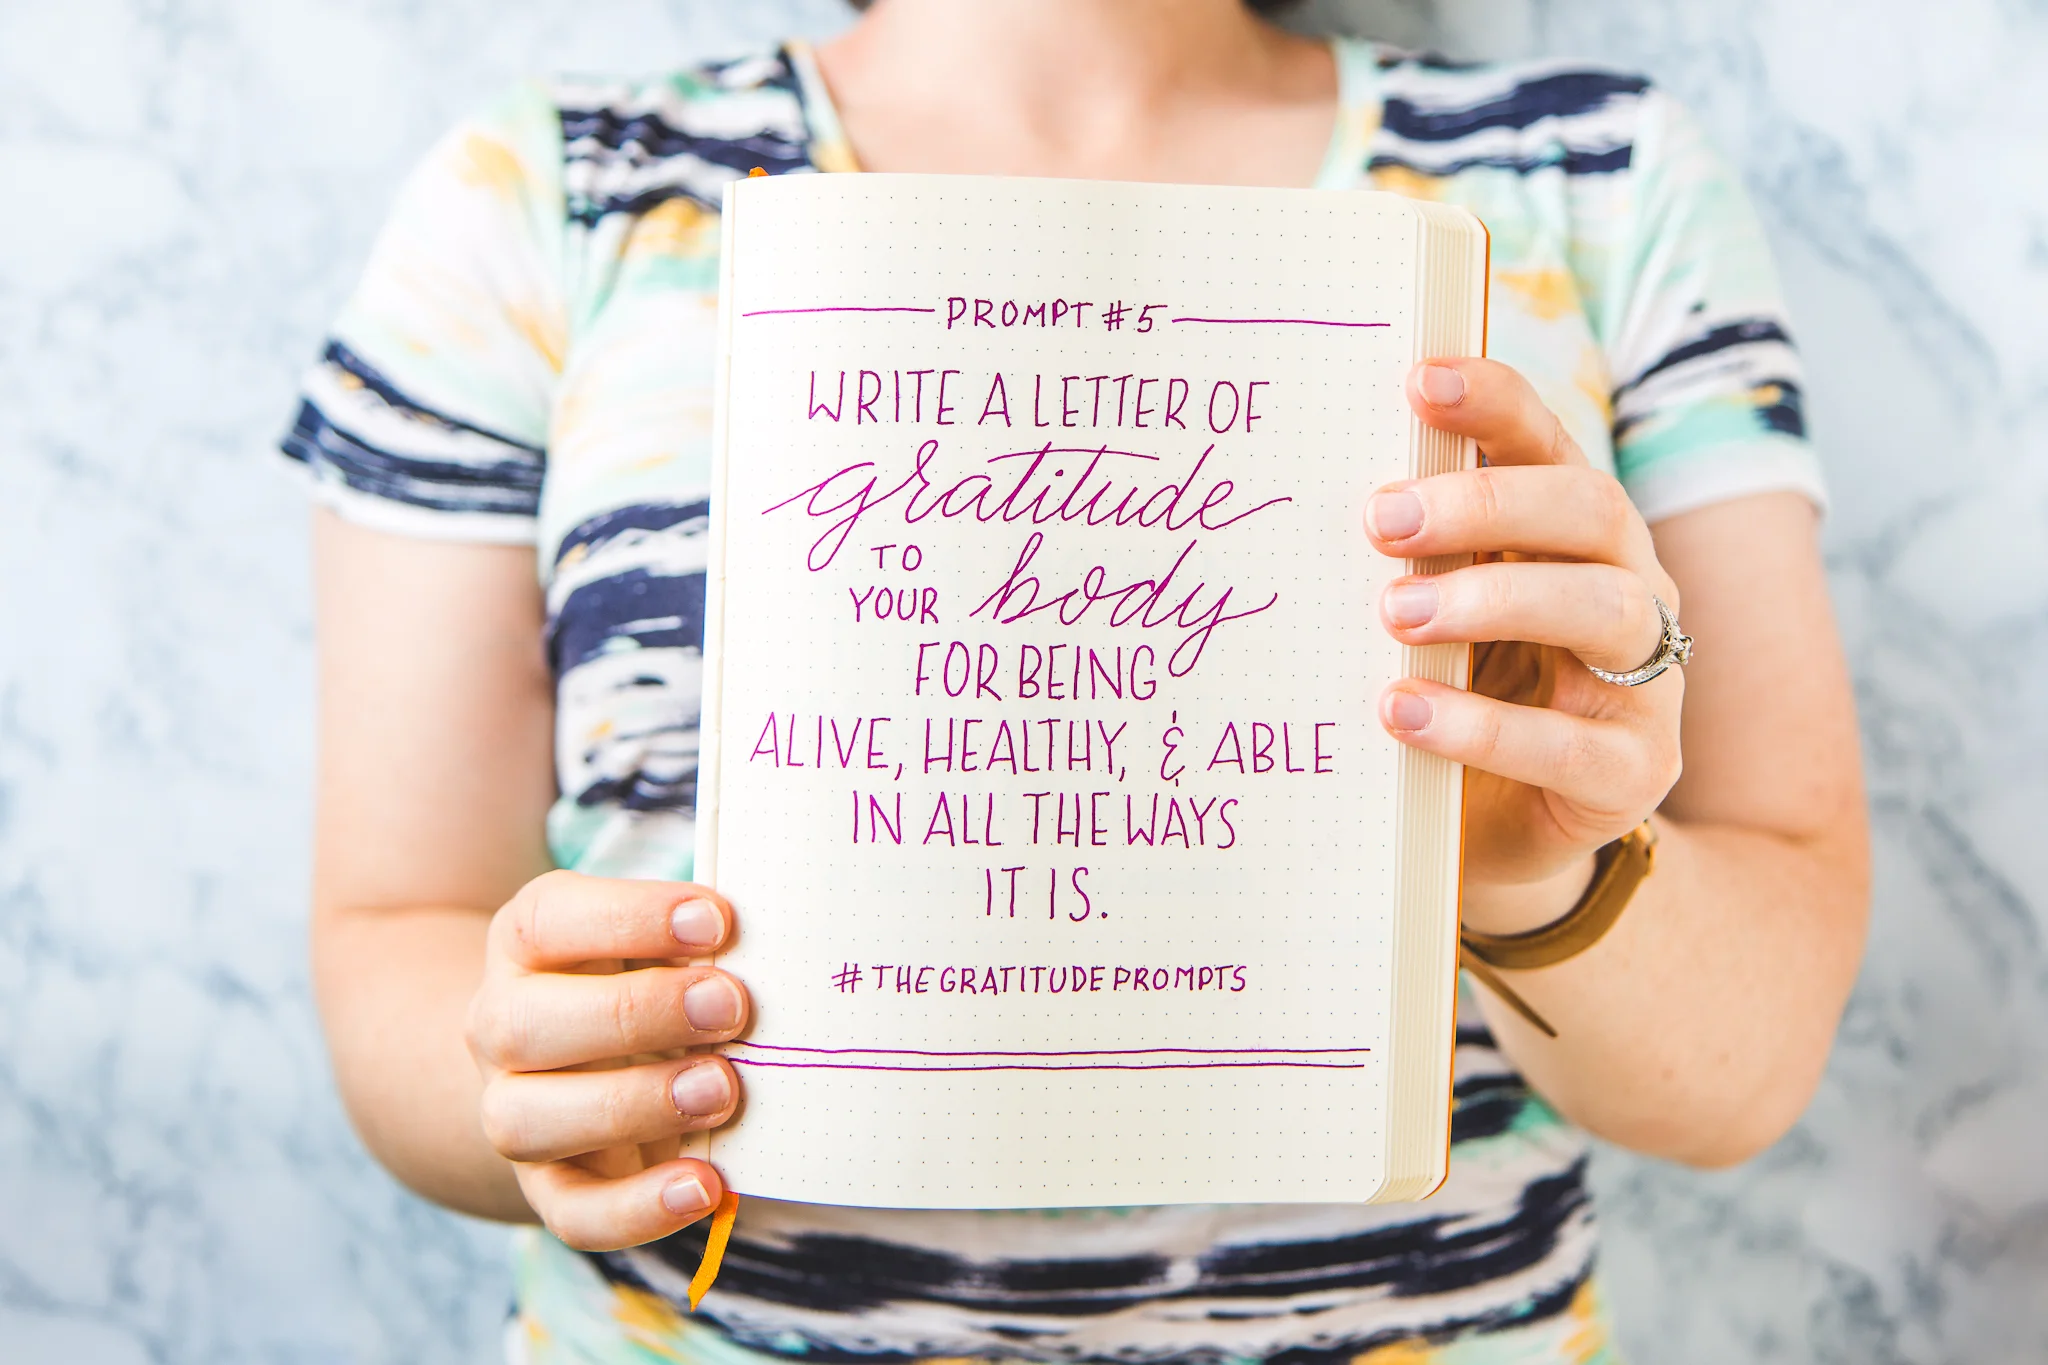 PROMPT #5
WRITE A LETTER OF
gratitude
TO
YOUR body
FOR BEING
ALIVE, HEALTHY, & ABLE
IN ALL THE WAYS
IT IS.
#THEGRATITUDEPROMPTS